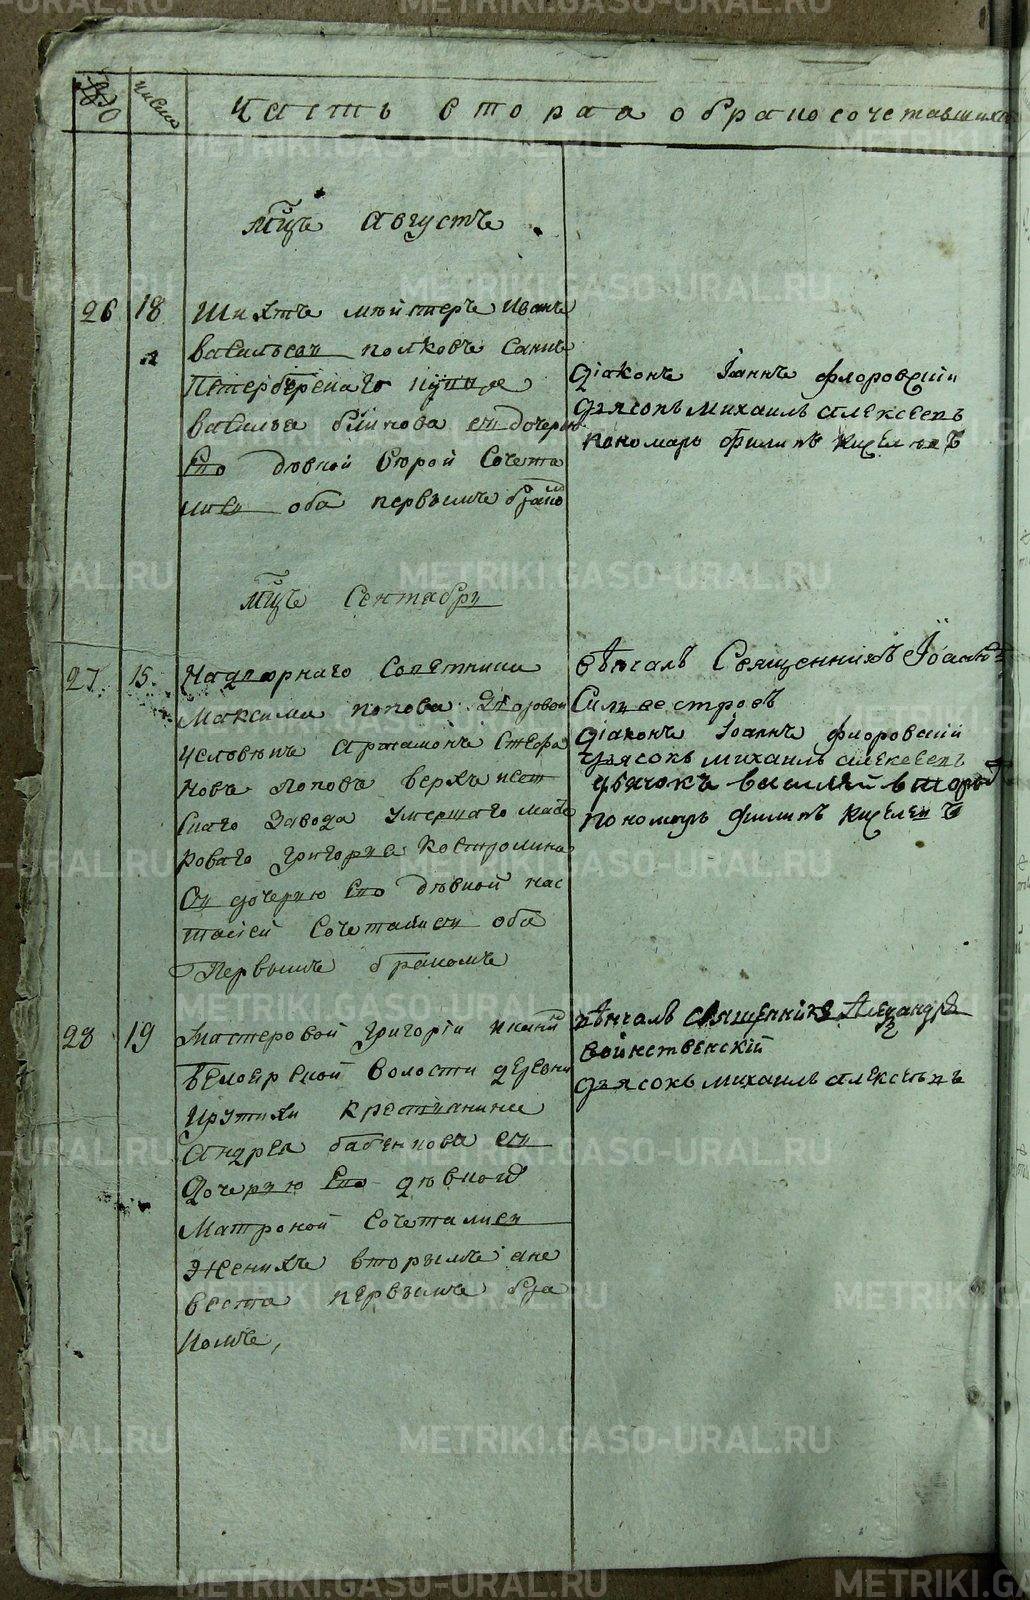 числа
Часть вторая о бракосочетавшихся
Мцъ Августъ
26 18 Шихтъ мейстеръ Иванъ
Васильевъ Полковъ Санкъ
Петербурскаго купца
Василья Блинова съ дочерью
Ево девкой Сюрой Сочета
лись оба первымъ бракомъ
Діаконъ Іоаннъ Флоровскіи
Дьяconъ Михаилъ Алексеевъ
Пономарь Филипъ Киселевъ
Мцъ Сентябрь
27 15 Надворнаго Советника
Максима Попова Дворовой
Человекъ Артамонъ Стефа
новъ Поповъ Верхъ Исет
скаго Завода умершаго масте
роваго Григорья Костромина
съ дочерью Ево девкой Нас
тасіей Сочетались оба
Первымъ бракомъ
Венчалъ Священникъ Іоаннъ
Сильвестровъ
Діаконъ Іоаннъ Флоровскій
Дьяconъ Михаилъ Алексеевъ
Дьячокъ Василей Вторыхъ
Пономарь Филипъ Киселевъ
28 19 Мастеровой Григорій Икани
Белоярской Волости деревни
Крутихи крестьянина
Андрея Бабенкова съ
Дочерью Ево девкой
Матроной Сочетались
Женихъ вторымъ а не
веста первымъ бра
комъ,
Венчалъ Священникъ Александръ
Воинственскій
Дьяconъ Михаилъ Алексеевъ
METRIKI.GASO-URAL.RU